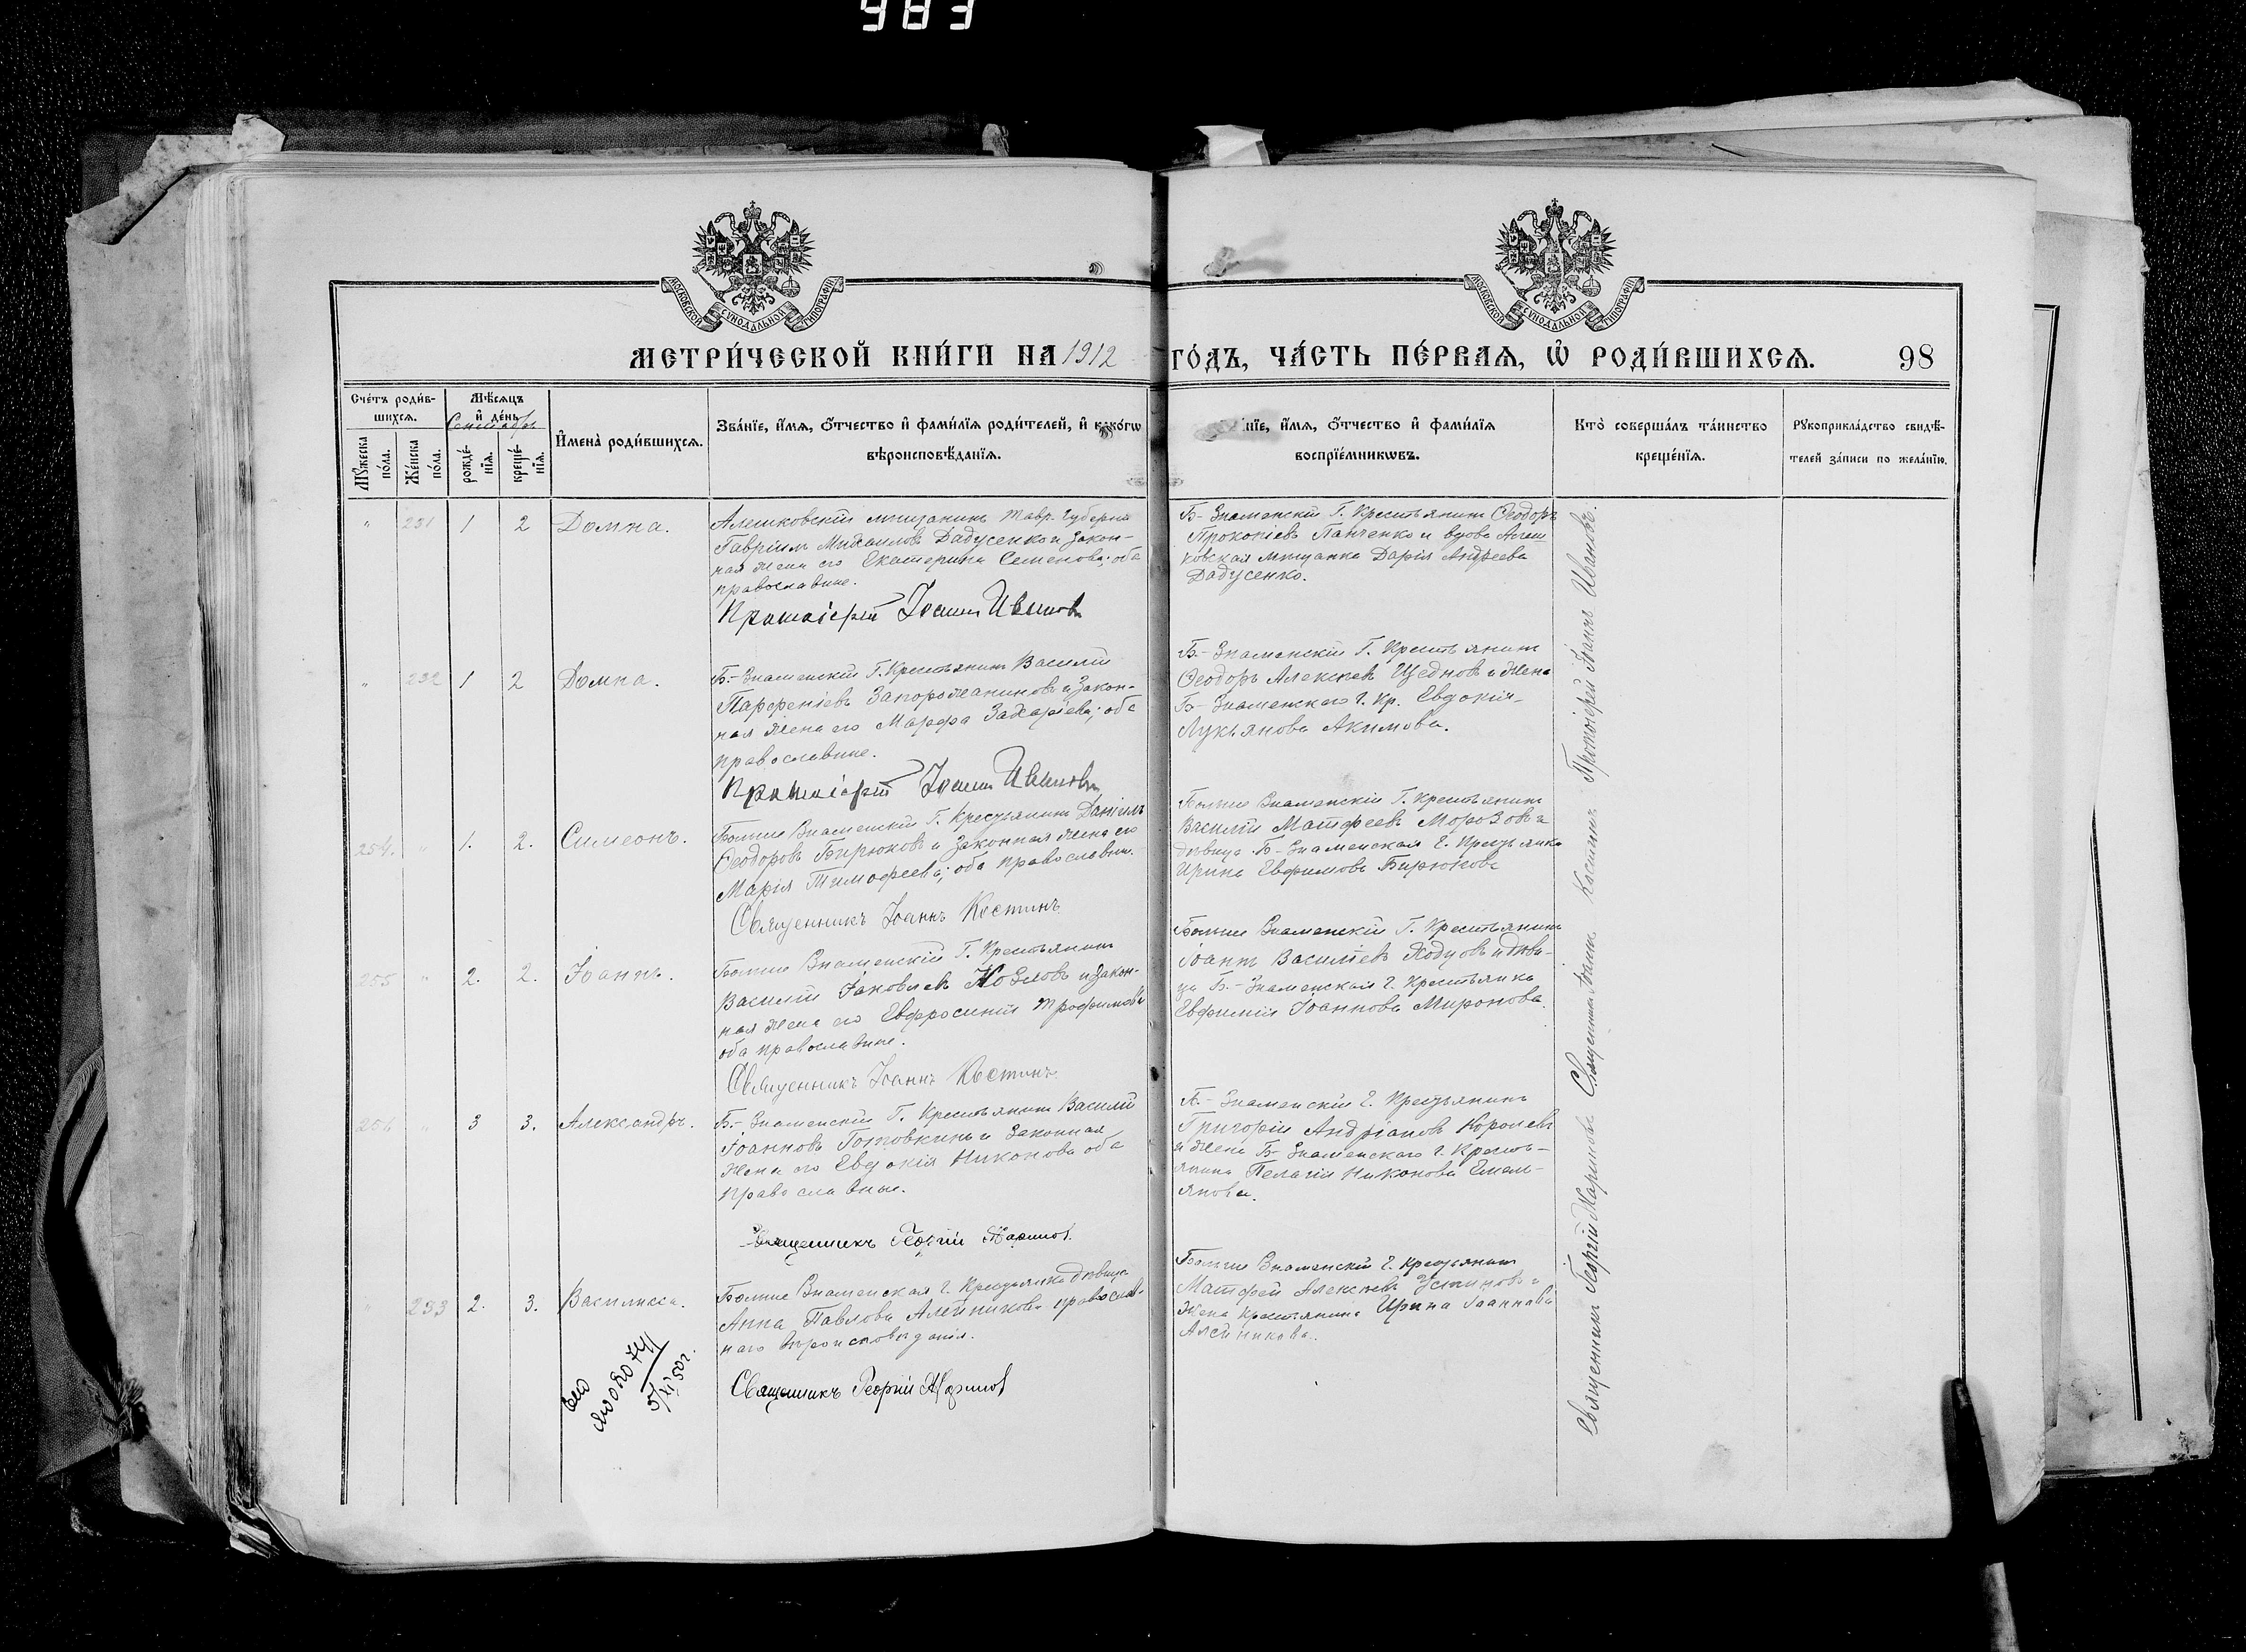 983
МОСКОВСКОЙ СѴНОДАЛЬНОЙ ТИПОГРАФІИ
МОСКОВСКОЙ СѴНОДАЛЬНОЙ ТИПОГРАФІИ
МЕТРИ́ЧЕСКОЙ КНИ́ГИ НА 1912 ГО́ДЪ, ЧА́СТЬ ПЕ́РВАѦ, Ѡ҆ РОДИ́ВШИХСѦ. 98
Сче́тъ роди́в-
шихсѧ.
Мꙋ́жеска по́ла.
Же́нска по́ла.
Мѣ́сѧцъ
и҆ де́нь
Сентябрь
рожде́-
нїѧ.
креще́-
нїѧ.
И҆мена̀ роди́вшихсѧ.
Зва́нїе, и҆́мѧ, ѻ҆́тчество и҆ фами́лїѧ роди́телей, и҆ како́гѡ
вѣроисповѣ́данїѧ.
нїе, и҆́мѧ, ѻ҆́тчество и҆ фами́лїѧ
воспрїе́мникѡвъ.
Кто̀ соверша́лъ та́инство
креще́нїѧ.
Рꙋкоприкла́дство свидѣ́-
телей за́писи по жела́нїю.
" 231 1 2 Домна.
Алешковскій мѣщанинъ Тавр. Губерніи
Гавріилъ Михаиловъ Дадусенко и закон-
ная жена его Екатерина Семенова; оба
православные.
Протоіерей Іоаннъ Ивановъ
Б-Знаменскій Г. Крестьянинъ Ѳеодоръ
Прокопіевъ Панченко и вдова Алеш
ковская мѣщанка Дарія Андреева
Дадусенко.
" 232 1 2 Домна.
Б.-Знаменскій Г. Крестьянинъ Василій
Парфеніевъ Запорожаниновъ и закон-
ная жена его Марфа Захаріева; оба
православные.
Протоіерей Іоаннъ Ивановъ
Б-Знаменскій Г. Крестьянинъ
Ѳеодоръ Алексѣевъ Щедновъ и жена
Б-Знаменскаго Г. Кр. Евдокія
Лукьянова Акимова.
254. " 1. 2. Симеонъ.
Больше Знаменскій Г. Крестьянинъ Даніилъ
Ѳеодоровъ Бирюковъ и законная жена его
Марія Тимофеева; оба православные.
Священникъ Іоаннъ Костинъ
Больше Знаменскій Г. Крестьянинъ
Василій Матфеевъ Морозовъ и
дѣвица Б-Знаменская Г. Крестьянка
Ирина Евфимова Бирюкова
255 " 2. 2. Іоаннъ.
Больше Знаменскій Г. Крестьянинъ
Василій Іаковлевъ Козловъ и закон-
ная жена его Евфросинія Трофимова
оба православные.
Священникъ Іоаннъ Костинъ
Больше Знаменскій Г. Крестьянинъ
Іоаннъ Василіевъ Ходусовъ и дѣви-
ца Б-Знаменская Г. Крестьянка
Евфимія Іоаннова Миронова.
256 " 3 3. Александръ.
Б-Знаменскій Г. Крестьянинъ Василій
Іоанновъ Готовкинъ и законная
жена его Евдокія Никонова оба
православные.
Священникъ Георгій
Б-Знаменскій Г. Крестьянинъ
Григорій Андріановъ Королевъ
и жена Б-Знаменскаго Г. Кресть-
янина Пелагія Никонова Емель-
янова.
" 233 2. 3. Василисса.
Больше Знаменская Г. Крестьянка дѣвица
Анна Павлова Алейникова православ-
наго вѣроисповѣданія.
Священникъ Георгій
Больше Знаменскій Г. Крестьянинъ
Матфей Алексѣевъ Устиновъ и
жена крестьянина Ирина Іоаннова
Алейникова.
5/XI 50 г.
Священникъ Георгій Священникъ Іоаннъ Костинъ Протоіерей Іоаннъ Ивановъ